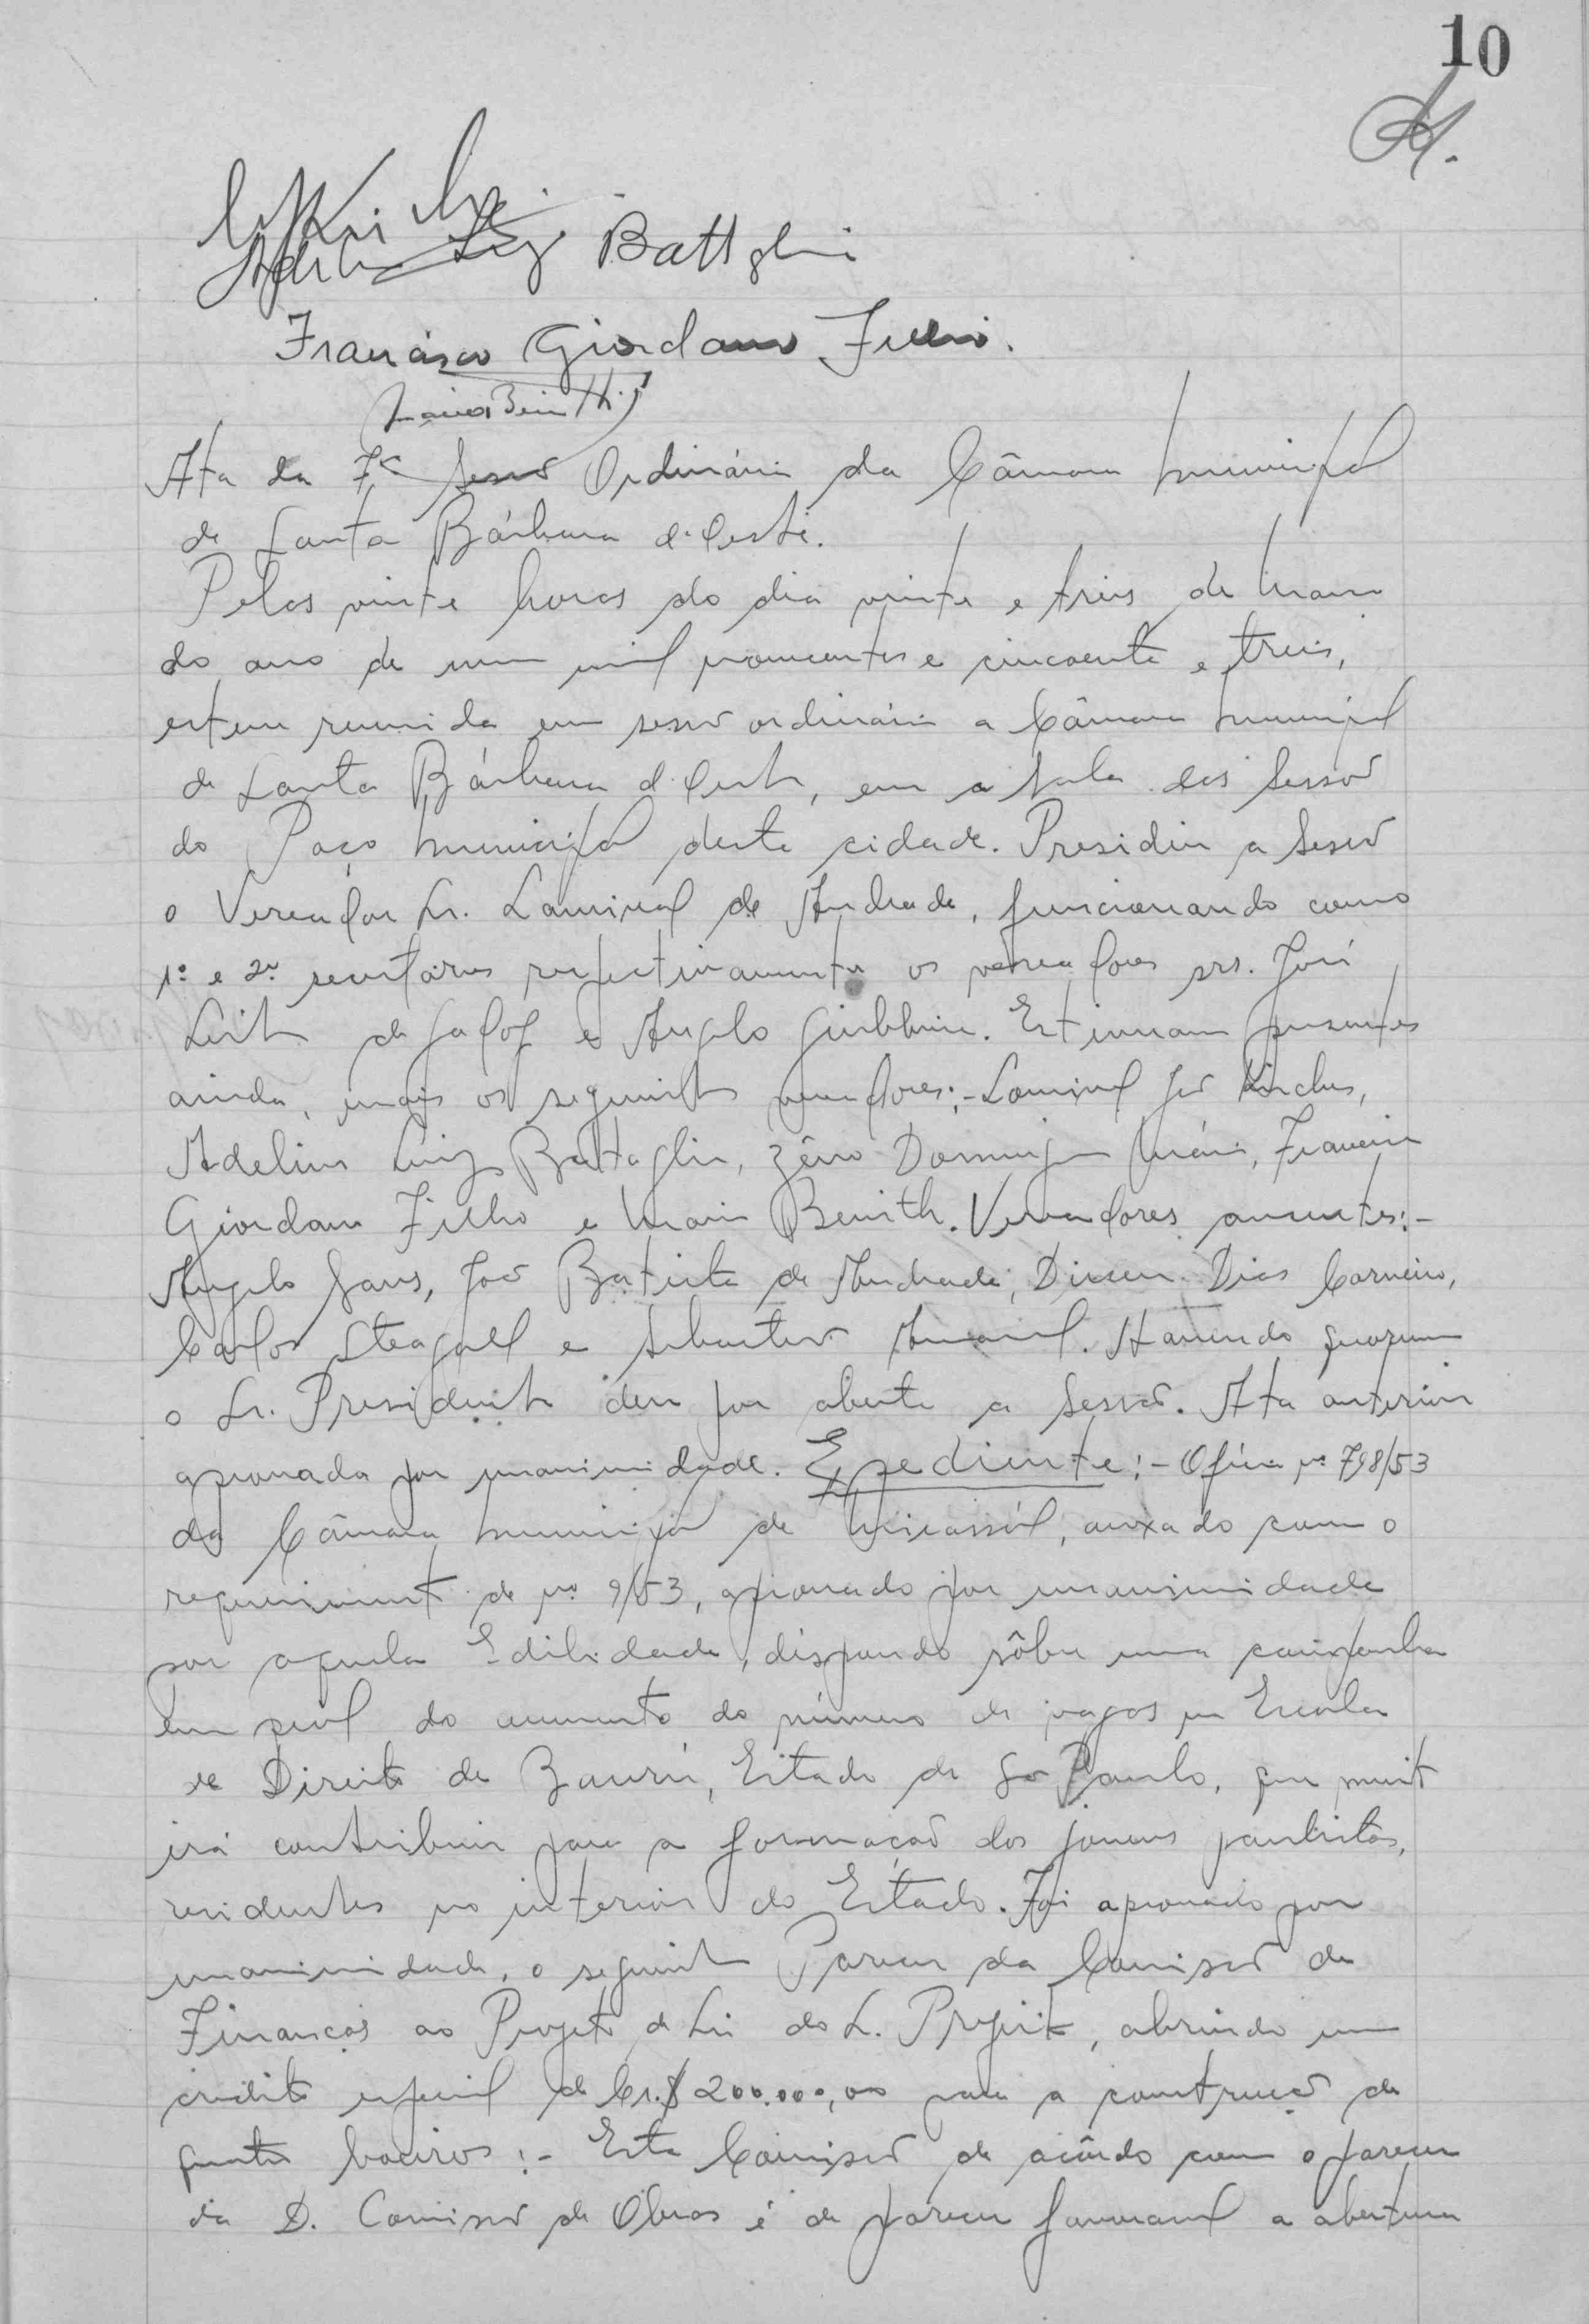 10
Battglini
Francisco Giordano Filho.
Ata da 7ª Sessão Ordinária da Câmara Municipal
de Santa Bárbara d'Oeste.
Pelas vinte horas do dia vinte e treis de Março
do ano de um mil novecentos e cincoenta e treis,
esteve reunida em sessão ordinária a Câmara Municipal
de Santa Bárbara d'Oeste, em a sala das Sessões
do Paço Municipal desta cidade. Presidiu a Sessão
o Vereador Sr. Lourival de Andrade, funcionando como
1º e 2º secretários respectivamente os vereadores srs. José
Leite de e Angelo Giubbina. Estiveram presentes
ainda, mais os seguintes vereadores:-
Adelino Luiz Battaglin, Zêno Domingos Francisco
Giordano Filho e Mario Benith. Vereadores ausentes:-
Angelo Sans, João Batista de Andrade, Dirceu Dias Carneiro,
Carlos Steagall e Sebastião Havendo quorum
o Sr. Presidente deu por aberta a Sessão. Ata anterior
aprovada por unanimidade. Expediente:- Ofício nº 798/53
da Câmara Municipal de Mirassól, anexado com o
requerimento de nº 9/53, aprovado por unanimidade
por aquela Edilidade, dispondo sôbre uma campanha
em prol do aumento do número de vagas na Escola
de Direito de Baurú, Estado de São Paulo, que muito
irá contribuir para a formação dos jovens paulistas,
residentes no interior do Estado. Foi aprovado por
unanimidade, o seguinte Parecer da Comissão de
Finanças ao Projeto de Lei do S. Prefeito, abrindo um
crédito especial de Cr.$ 200.000,00 para a construção de
quatro boeiros:- Esta Comissão de acôrdo com o parecer
da D. Comissão de Obras é de parecer favoravel a abertura